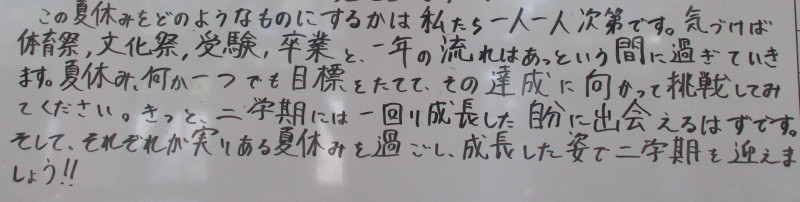 この夏休みをどのようなものにするかは私たち一人一人次第です。気づけば
体育祭,文化祭,受験,卒業と、一年の流れはあっという間に過ぎていき
ます。夏休み、何か一つでも目標をたてて、その達成に向かって挑戦してみ
てください。きっと、二学期には一回り成長した自分に出会えるはずです。
そして、それぞれが実りある夏休みを過ごし、成長した姿で二学期を迎えま
しょう!!